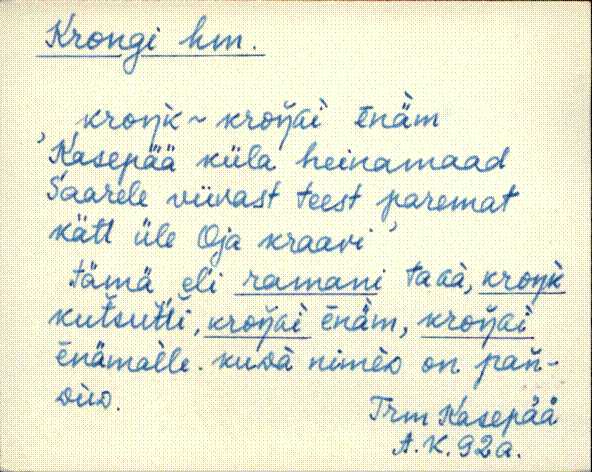 Krongi hm.
kroŋk ~ kroŋ̆ɢi ēnäm
'Kasepää küla heinamaad
Saarele viivast teest paremat
kätt üle Oja kraavi'
tämä eli ramani taɢà, kroŋk
kutsutti, kroŋ̆ɢi ēnäm, kroŋ̆ɢi
ēnämälle. kuda nimèᴅ on pań-
dùᴅ.
Trm Kasepää
A. K. 92a.